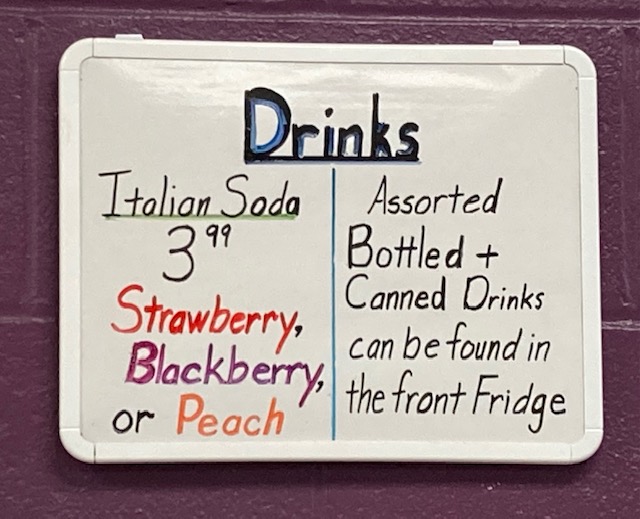 Drinks
Italian Soda
3.99
Strawberry,
Blackberry,
or Peach
Assorted
Bottled +
Canned Drinks
can be found in
the front Fridge